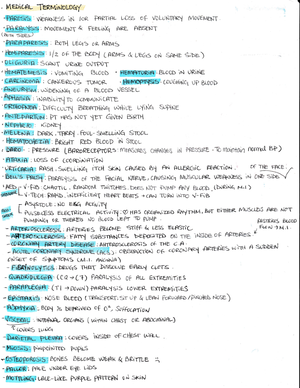 Medical Terminology
- Paresis: weakness in (or partial loss of voluntary movement
- Paralysis: movement & feeling are absent
- Paraparesis: both legs or arms
- Hemiparesis: 1/2 of the body (arms & legs on same side)
- Oliguria: scant urine output
- Hematemesis: vomiting blood - Hematuria: blood in urine
- Carcinoma: cancerous tumor - Hemoptysis: coughing up blood
- Aneurysm: widening of a blood vessel
- Aphasia: inability to communicate
- Orthopnea: difficulty breathing while lying supine
- Antepartum: pt has not yet given birth
- Nephric: kidney
- Melena: dark, tarry, foul-smelling stool
- Hematochezia: bright red blood in stool
- Baro: pressure (baroreceptors measures changes in pressure - to maintain normal BP)
- Ataxia: loss of coordination
- Urticaria: rash, swelling, itchy skin caused by an allergic reaction. of the face
- Bell's Palsy: paralysis of the facial nerve, causing muscular weakness in one side
V-Fib: chaotic, random twitches does not pump any blood
V-Tach: rapid, inefficient heart beats - can turn into V-Fib
Asystole: no EKG activity
Pulseless electrical activity: has organized rhythm, but either muscles are not
pumping or there's no blood left to pump
- Arteriosclerosis: arteries become stiff & less elastic
- Atherosclerosis: fatty substances deposited on the inside of arteries
- Coronary artery disease: atherosclerosis of the C.A
- Acute coronary syndrome (ACS): obstruction of coronary arteries with a sudden
onset of symptoms (M.I. angina)
- Fibrinolytics: drugs that dissolve early clots
- Quadriplegia: paralysis of all extremities
- Paraplegia: paralysis lower extremities
- Epistaxis: nose bleed (transport: sit up & lean forward/pinched nose)
- Hypoxia: body is deprived of O², suffocation
- Visceral: internal organs (within chest or abdominal)
covers lung
- Parietal pleura: covers inside of chest wall
- Miosis: pinpointed pupils
- Osteoporosis: bones become weak & brittle
- Pallor: pale under eye lids
- Mottling: lace-like purple pattern on skin